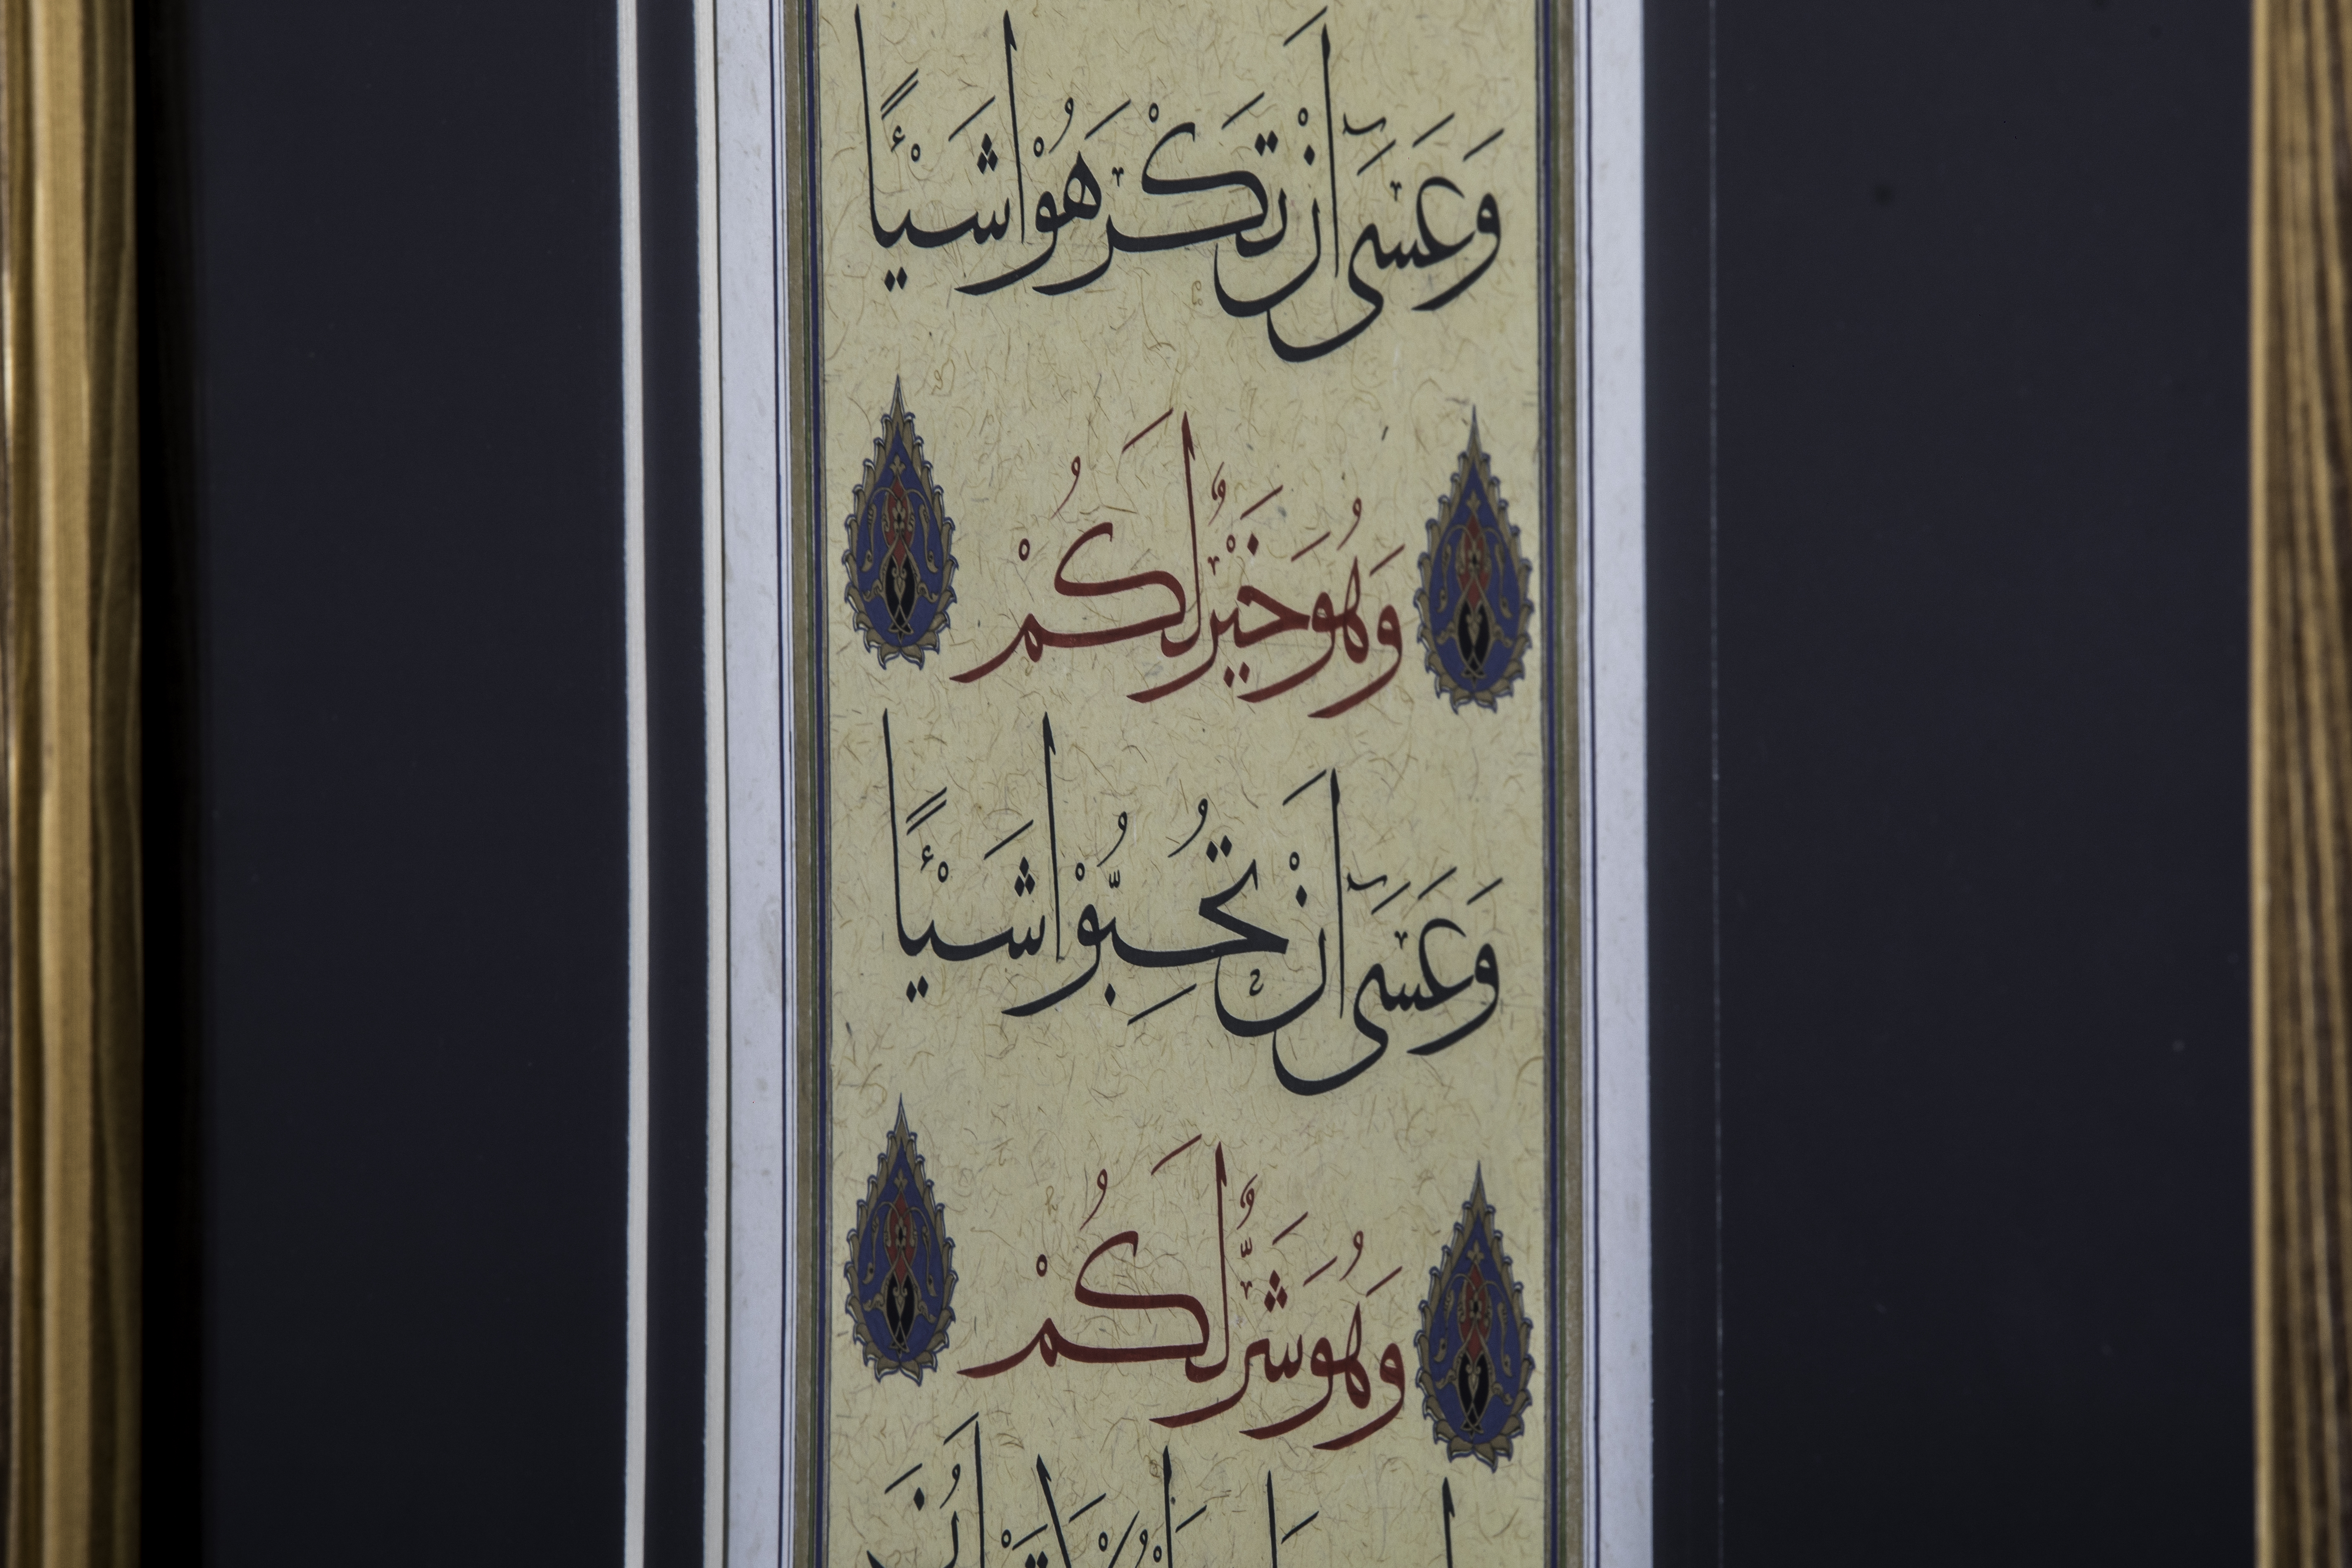 وَعَسَىٰٓ أَنْ تَكْرَهُوْا شَيْـًٔا
وَهُوَ خَيْرٌ لَكُمْ
وَعَسَىٰٓ أَنْ تُحِبُّوْا شَيْـًٔا
وَهُوَ شَرٌّ لَكُمْ